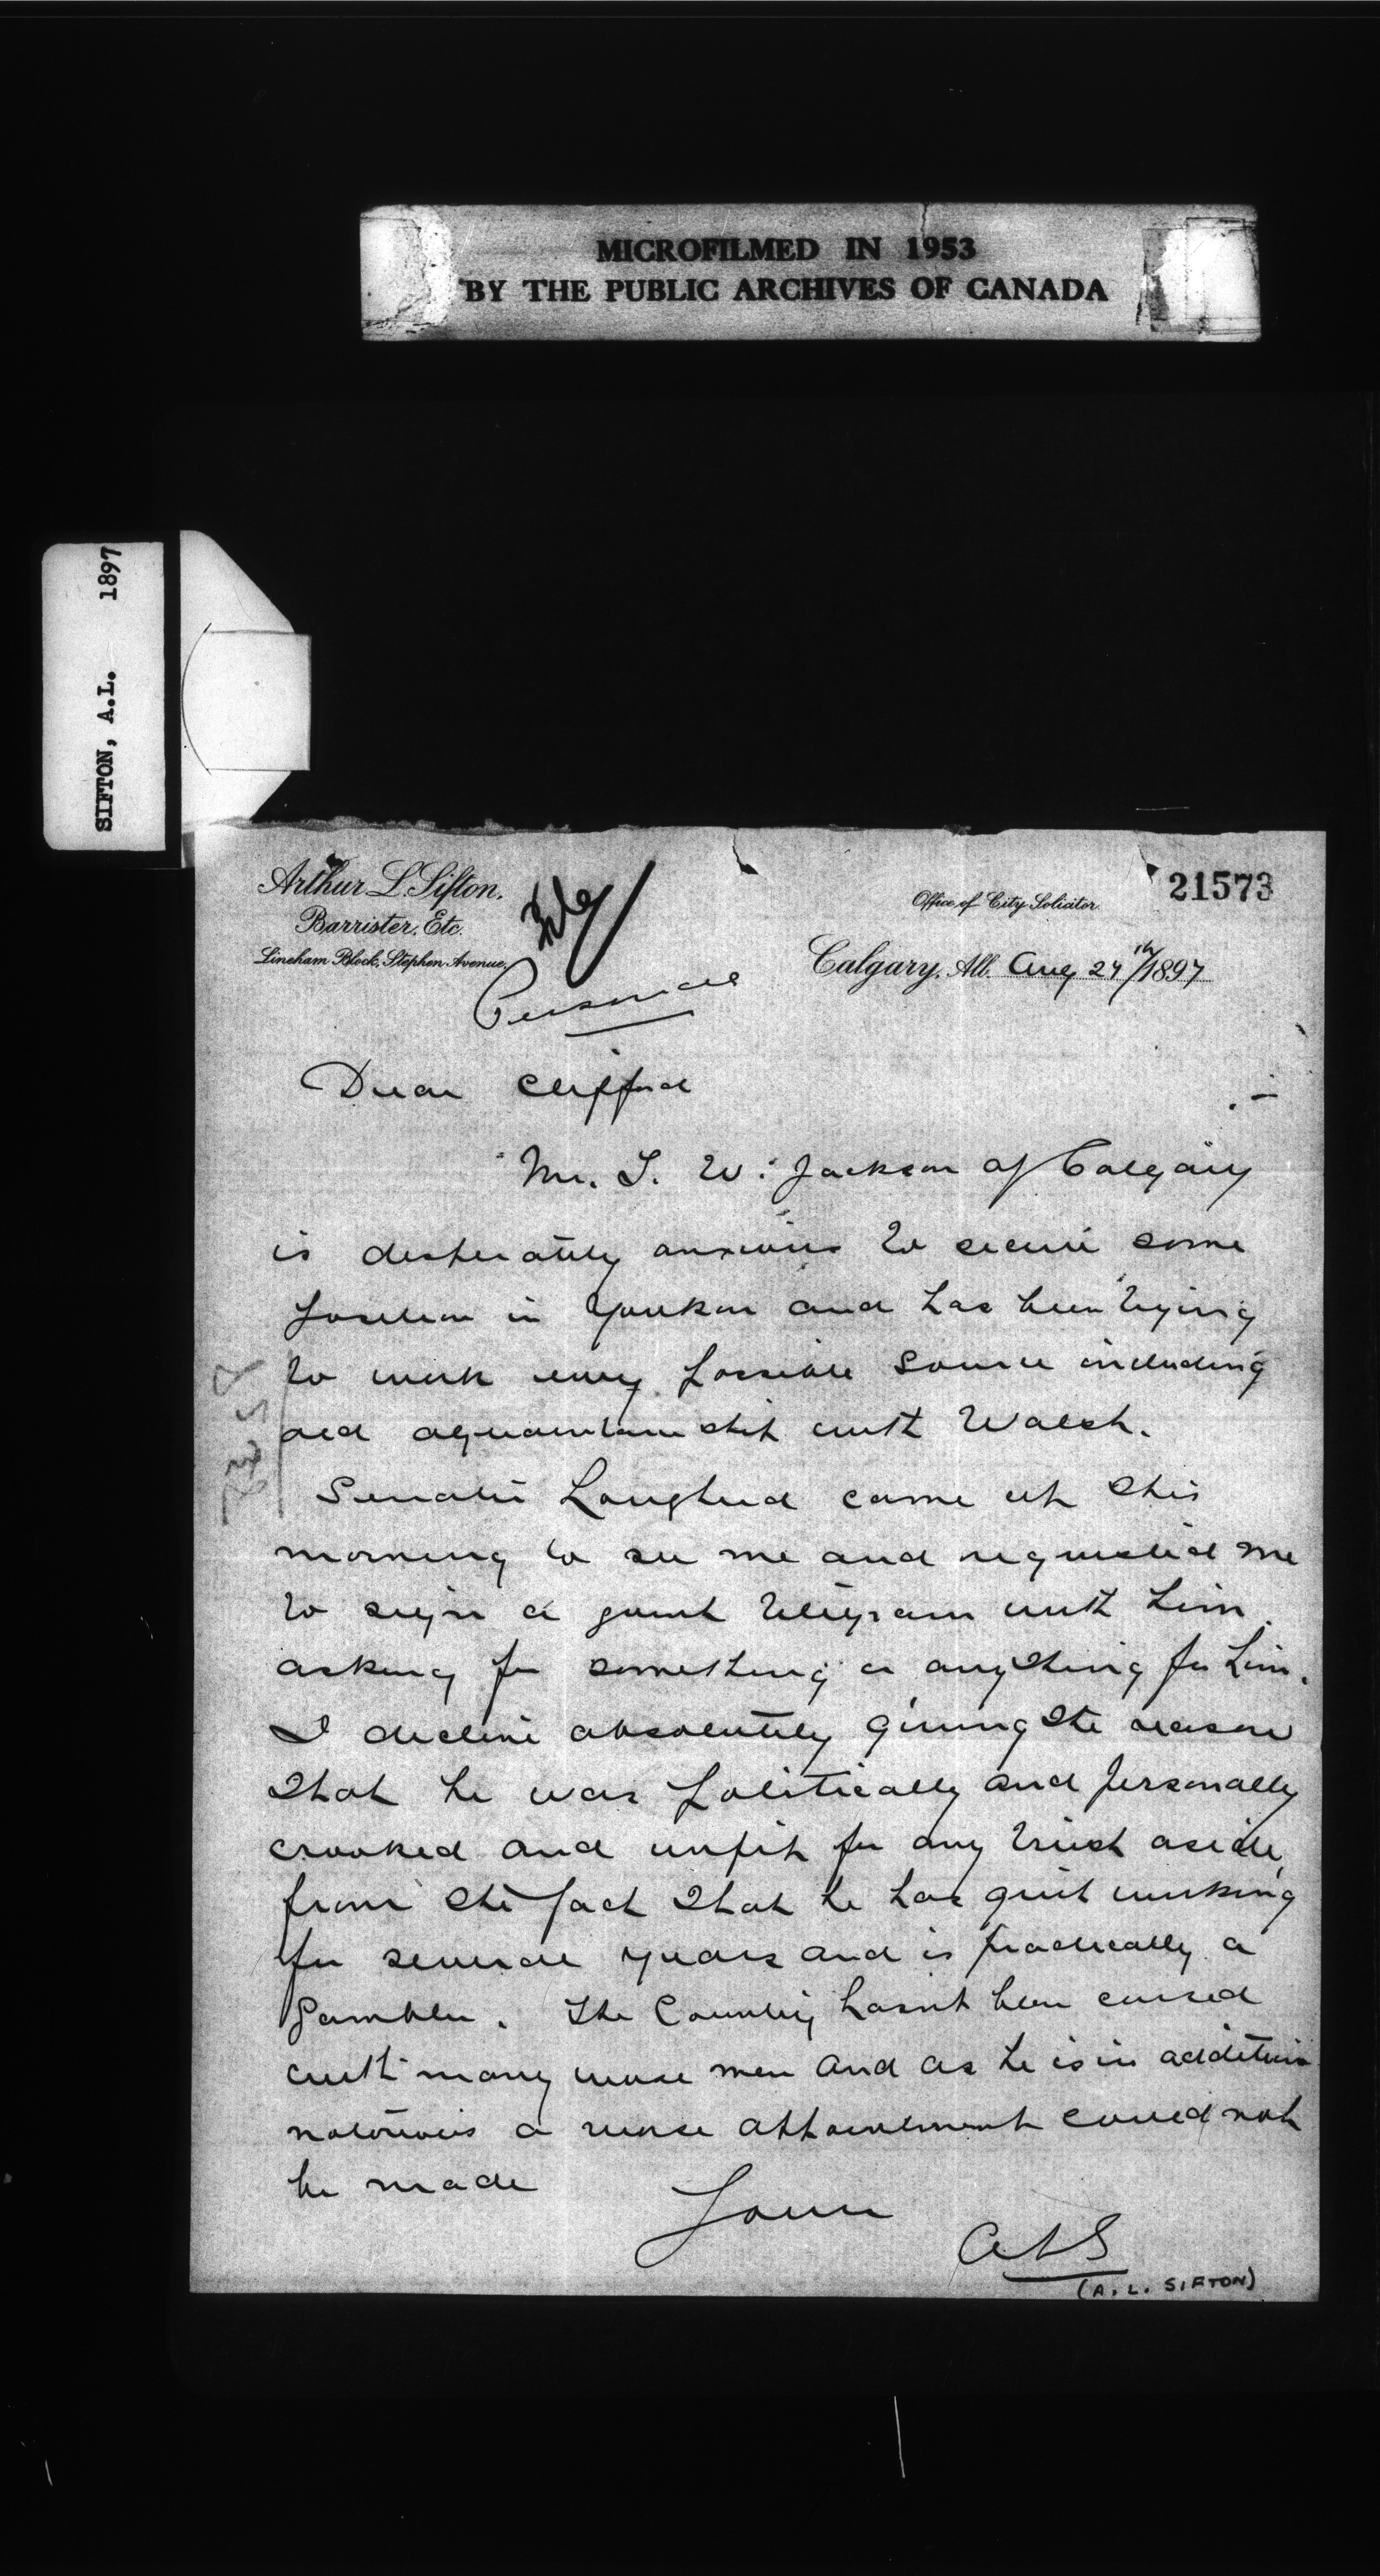 MICROFILMED IN 1953
BY THE PUBLIC ARCHIVES OF CANADA
SIFTON, A.L. 1897
Arthur L. Sifton.
Barrister, Etc.
Lineham Block, Stephen Avenue.
File
Personal
Office of City Solicitor.
21573
Calgary, Alb. Aug 27th 1897
Dear Clifford
Mr. T. W. Jackson of Calgary
is desperately anxious to secure some
position in Youkon and has been trying
to work every possible source including
old aquaintanceship with Walsh.
Senator Lougheed came up this
morning to see me and requested me
to sign a joint telegram with him
asking for something or anything for him.
I decline absolutely giving the reason
that he was politically and personally
crooked and unfit for any trust aside
from the fact that he has quit working
for several years and is practically a
Gambler. The Country hasnt been cursed
with many worse men and as he is in addition
notorious a worse appointment could not
be made
Yours
ALS
(A. L. SIFTON)